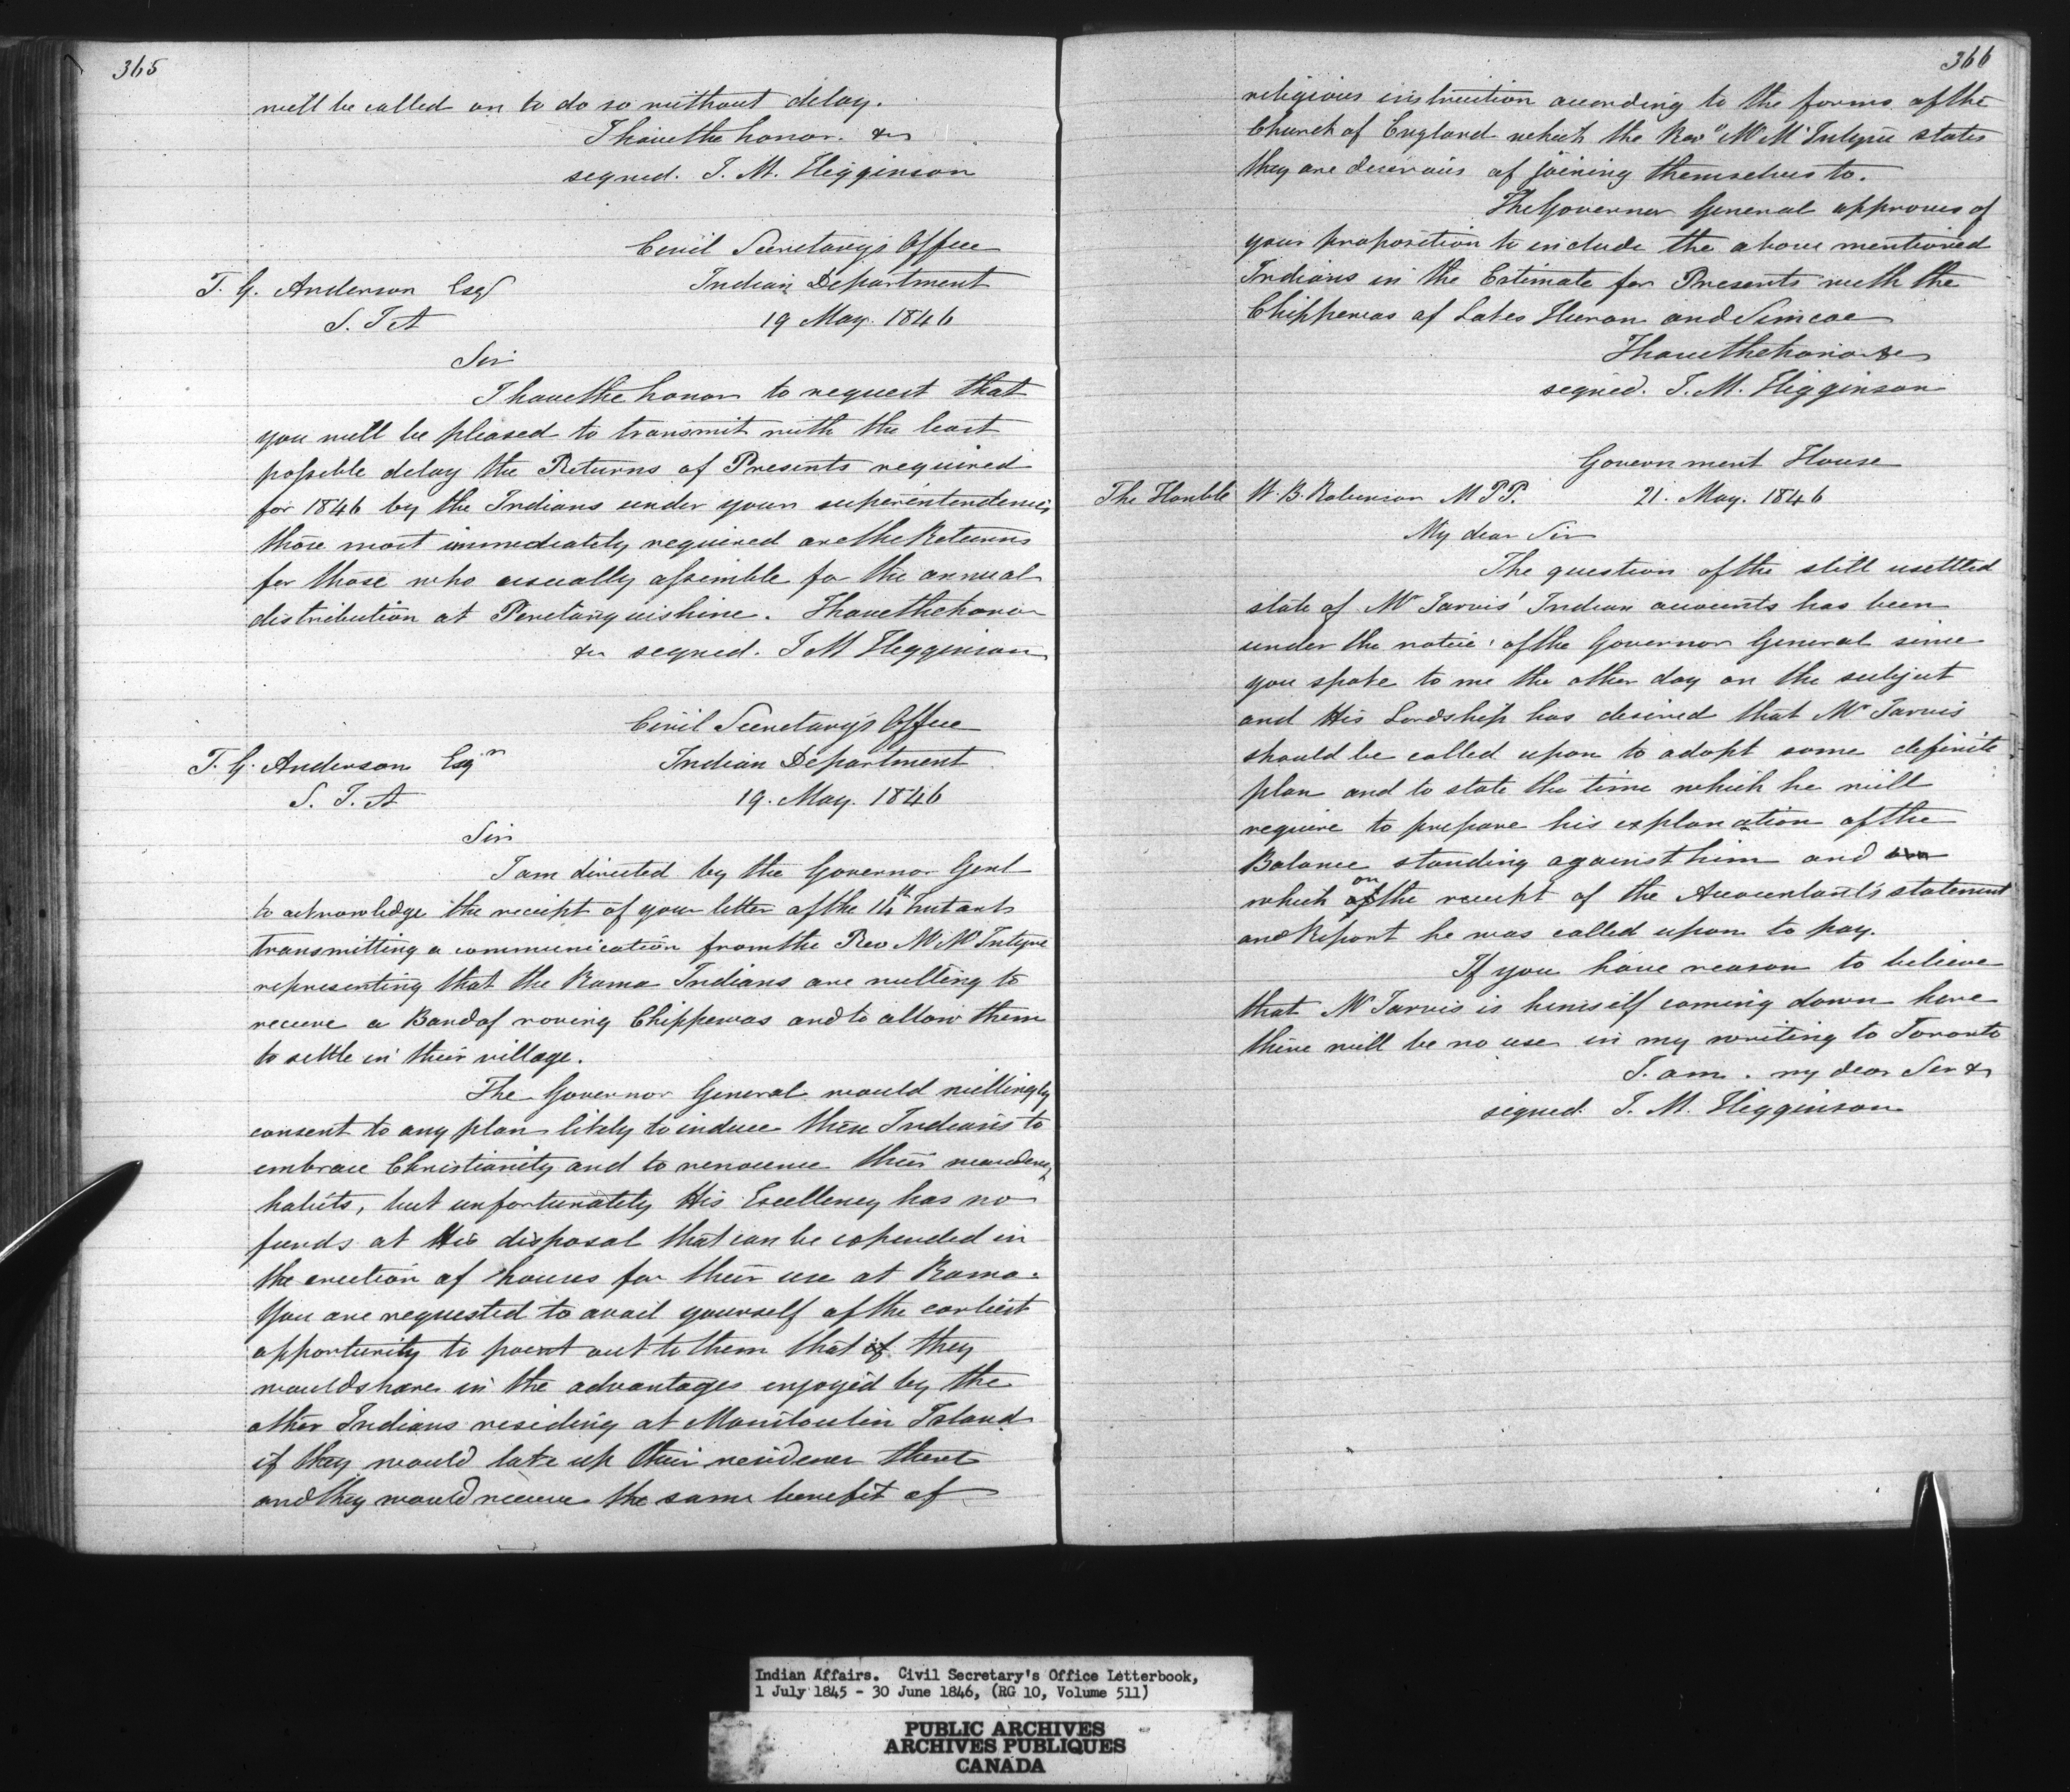 365
will be called on to do so without delay.
I have the honor. &c
signed. J. M. Higginson
Civil Secretary's Office
T. G. Anderson Esqr
Indian Department
S. I. A
19 May. 1846
Sir
I have the honor to request that
you will be pleased to transmit with the least
possible delay the Returns of Presents required
for 1846 by the Indians under your superintendence,
those most immediately required are the Returns
for those who usually assemble for the annual
distribution at Penetanguishine. I have the honor
&c signed. J M Higginson
Civil Secretary's Office
T. G. Anderson Esqr
Indian Department
S. I. A
19. May. 1846
Sir
I am directed by the Governor Genl
to acknowledge the receipt of your letter of the 14th Instant
transmitting a communication from the Rev Mr McIntyre
representing that the Rama Indians are willing to
receive a Band of roving Chippewas and to allow them
to settle in their village.
The Governor General would willingly
consent to any plan likely to induce these Indians to
embrace Christianity and to renounce their wandering
habits, but unfortunately His Excellency has no
funds at His disposal that can be expended in
the erection of houses for their use at Rama.
You are requested to avail yourself of the earliest
opportunity to point out to them that if they
would share in the advantages enjoyed by the
other Indians residing at Manitoulin Island
if they would take up their residence there
and they would receive the same benefit of
366
religious instruction according to the forms of the
Church of England which the Revd Mr McIntyre states
they are desirous of joining themselves to.
The Governor General approves of
your proposition to include the above mentioned
Indians in the Estimate for Presents with the
Chippewas of Lakes Huron and Simcoe
I have the honor &c
signed. J. M. Higginson
Government House
The Honble W. B. Robinson M P P. 21. May. 1846
My dear Sir
The question of the still usettled
state of Mr Jarvis' Indian accounts has been
under the notice of the Governor General since
you spoke to me the other day on the subject
and His Lordship has desired that Mr Jarvis
should be called upon to adopt some definite
plan and to state the time which he will
require to prepare his explanation of the
Balance standing against him and
which on the receipt of the Accountant's statement
and Report he was called upon to pay.
If you have reason to believe
that Mr Jarvis is himself coming down here
there will be no use in my writing to Toronto
I am. my dear Sir &c
signed. J. M. Higginson
Indian Affairs. Civil Secretary's Office Letterbook,
1 July 1845 - 30 June 1846, (RG 10, Volume 511)
PUBLIC ARCHIVES
ARCHIVES PUBLIQUES
CANADA